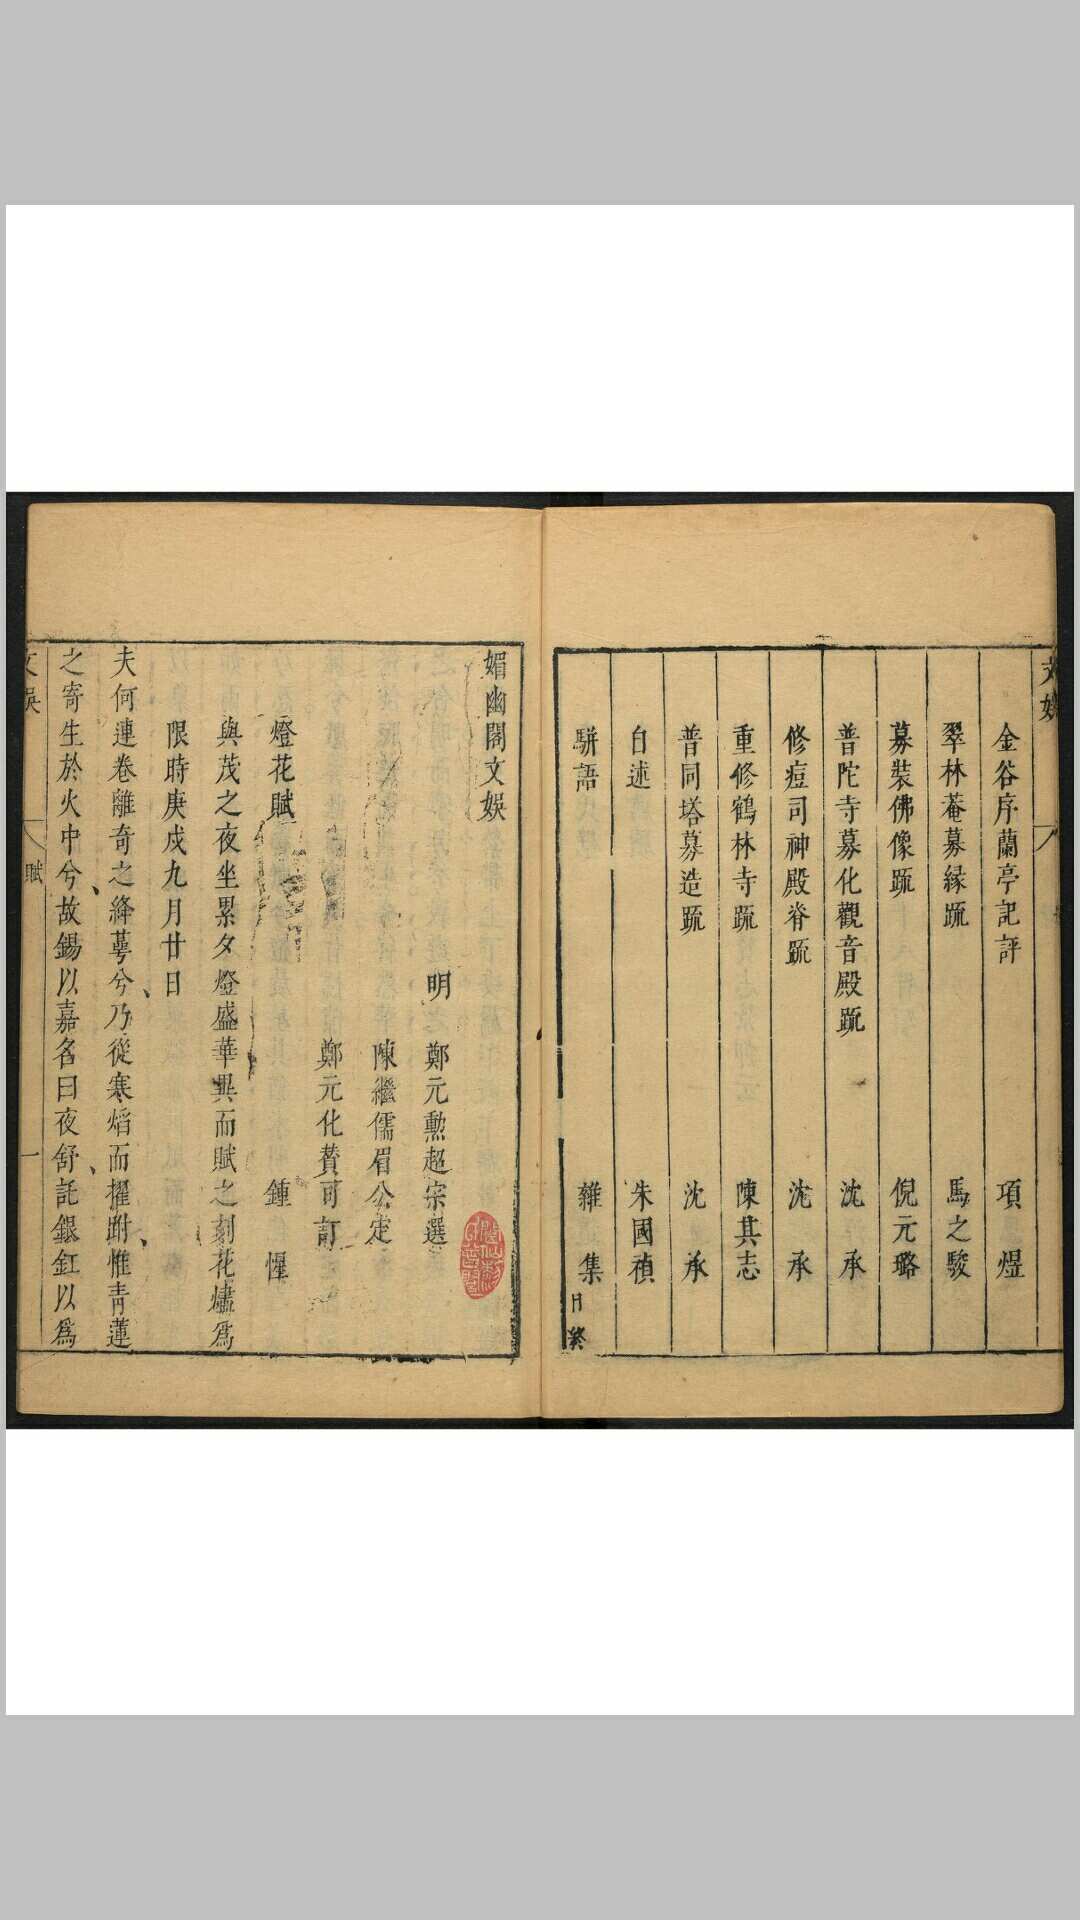 文娛
金谷序蘭亭記評 項煜
翠林菴募緣疏 馬之駿
募裝佛像疏 倪元璐
普陀寺募化觀音殿疏 沈承
修痘司神殿脊疏 沈承
重修鶴林寺疏 陳其志
普同塔募造疏 沈承
自述 朱國禎
駢語 雜集
目終
媚幽閣文娛
明 鄭元勳超宗選
陳繼儒眉公定
鄭元化贊可訂
燈花賦 鍾惺
與茂之夜坐累夕燈盛華異而賦之刻花燼為
限時庚戌九月廿日
夫何連卷離奇之絳萼兮、乃從寒焰而擢跗、惟青蓮
之寄生於火中兮、故錫以嘉名曰夜舒、託銀釭以為
文娛 賦 一